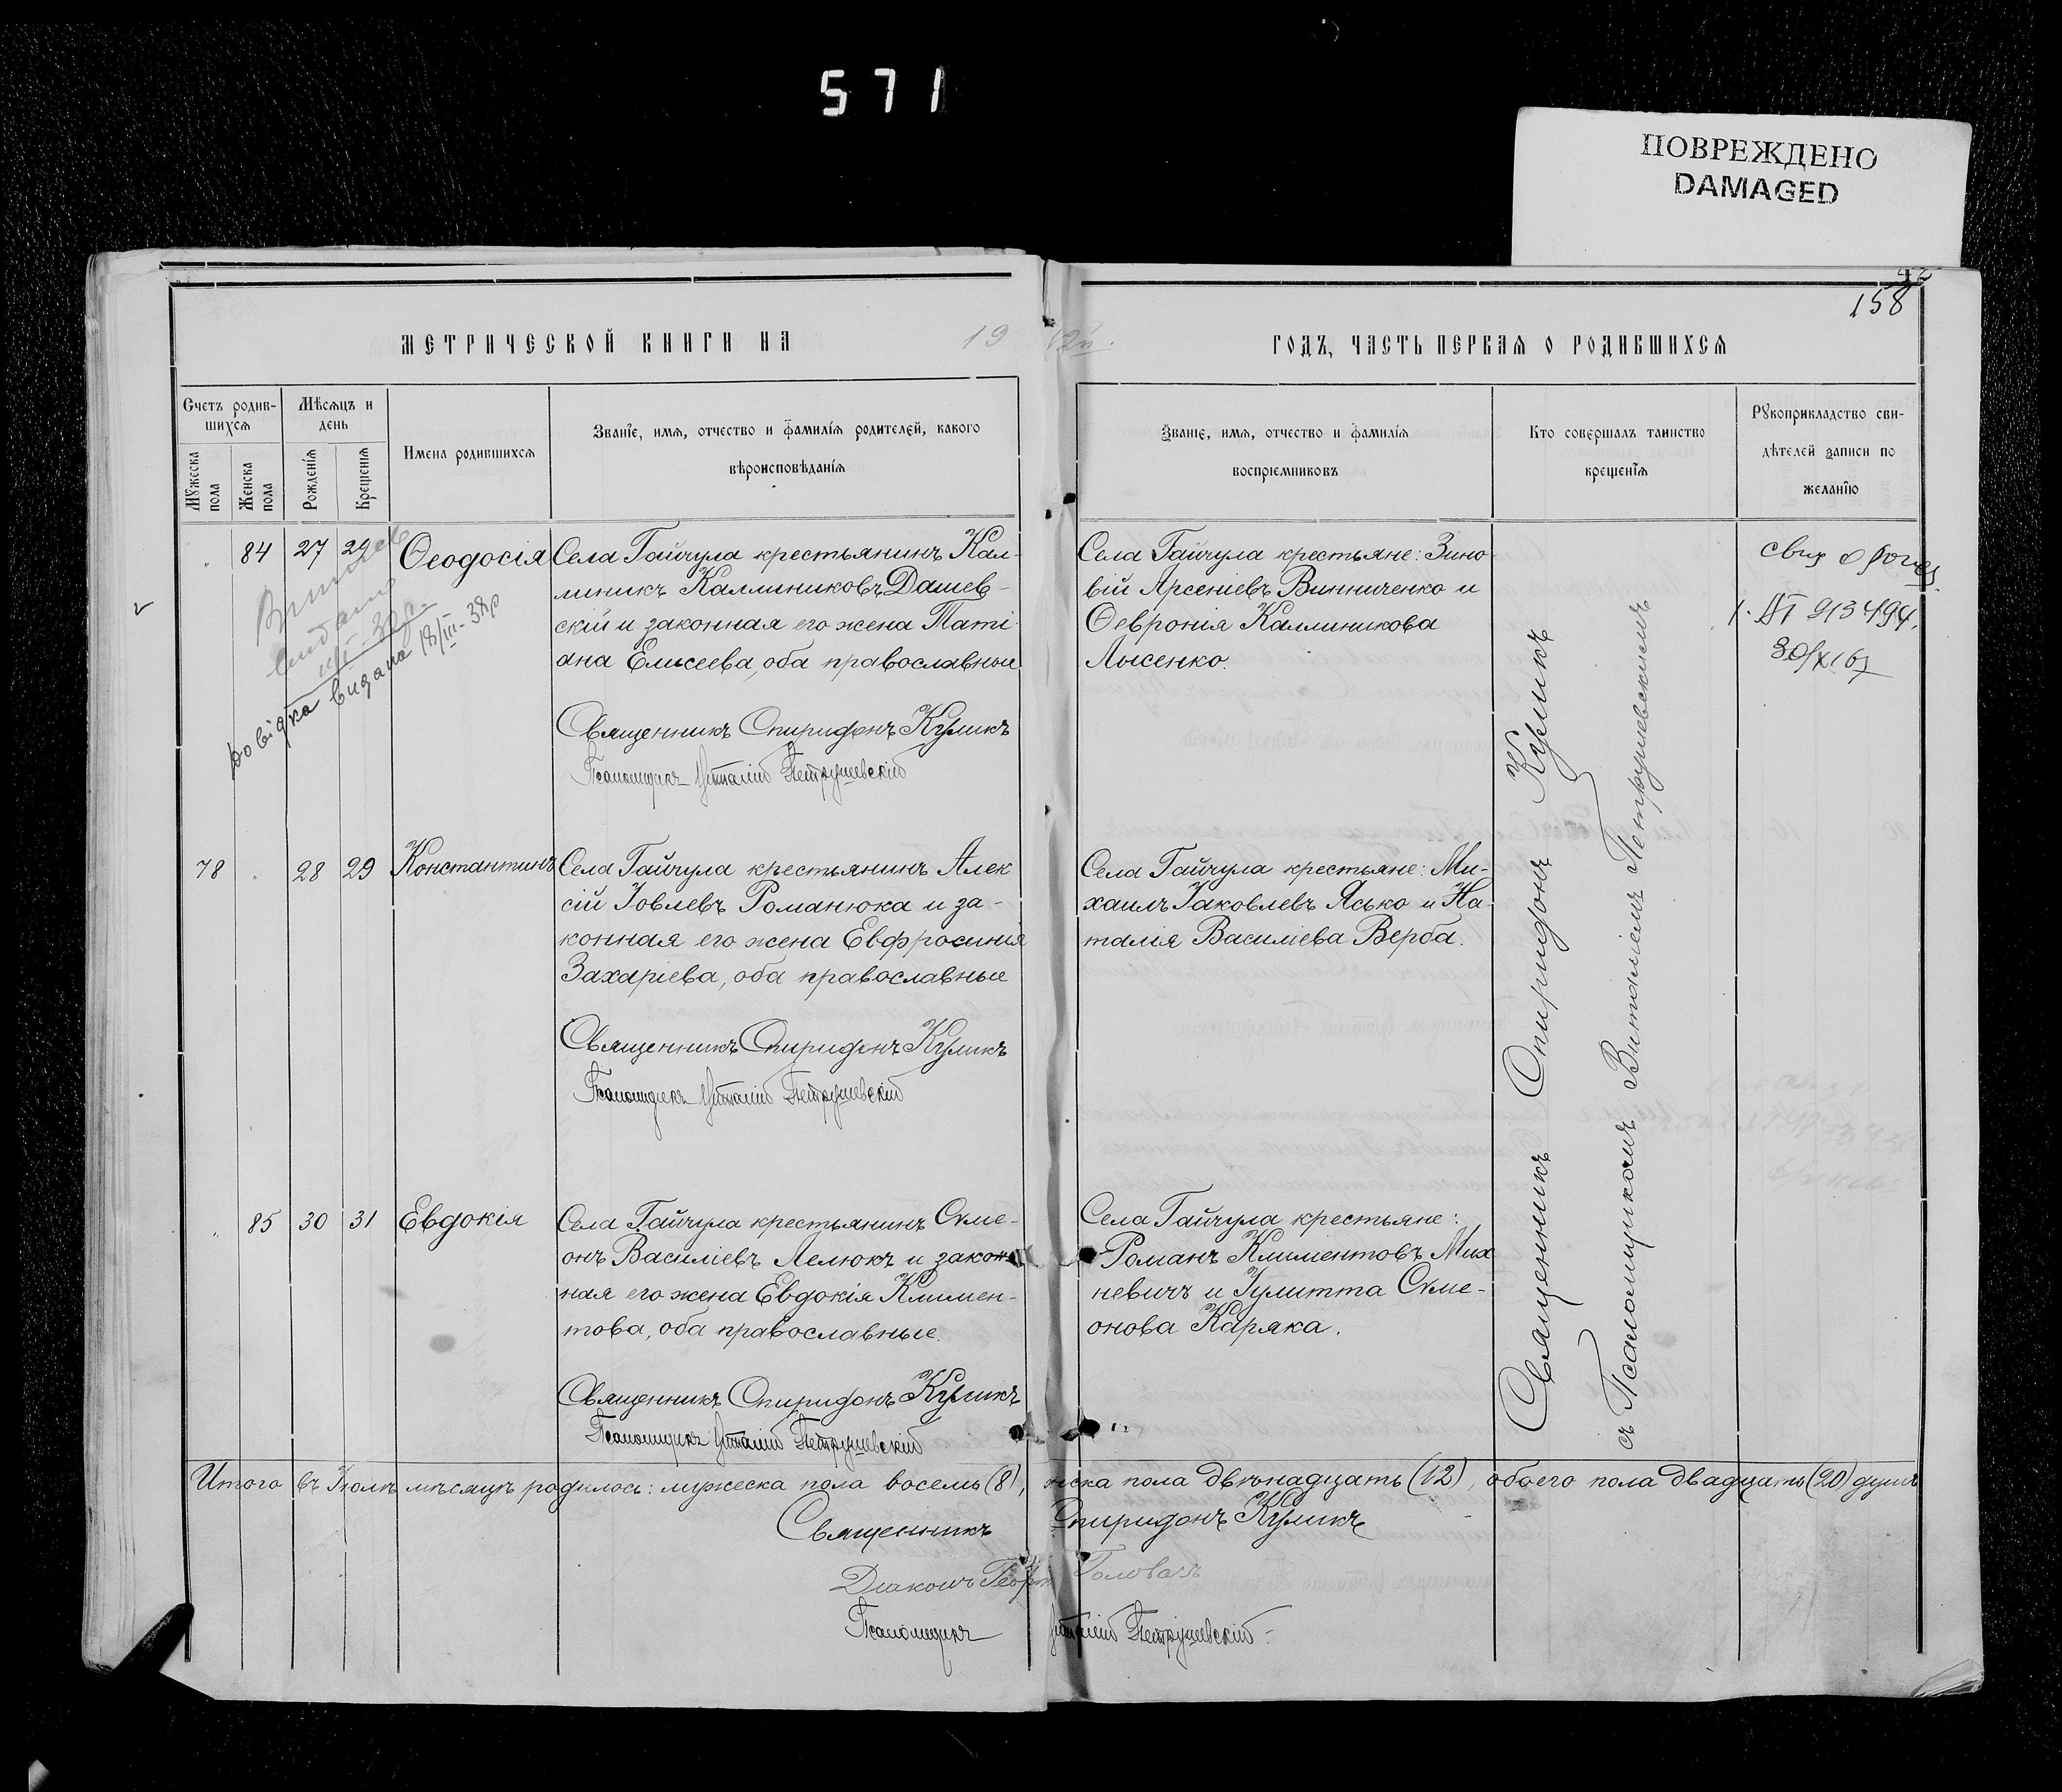 571
ПОВРЕЖДЕНО
DAMAGED
158
МЕТРИЧЕСКОЙ КНИГИ НА 19
12й.
ГОДЪ, ЧАСТЬ ПЕРВАЯ О РОДИВШИХСЯ
Счетъ родив-
шихся
Мужеска пола
Женска пола
Мѣсяцъ и
день
Рожденія
Крещенія
Имена родившихся
Званіе, имя, отчество и фамилія родителей, какого
вѣроисповѣданія
Званіе, имя, отчество и фамилія
воспріемниковъ
Кто совершалъ таинство
крещенія
Рукоприкладство сви-
дѣтелей записи по
желанію
84 27 29 Ѳеодосія
Села Гайчула крестьянинъ Кал-
линикъ Каллиниковъ Дашев-
скій и законная его жена Таті-
ана Елисеева, оба православные
Священникъ Спиридонъ Куликъ
Псаломщикъ Виталій Петрушевскій
довідка видана 18/III-38р
Села Гайчула крестьяне: Зино
вій Арсеніевъ Винниченко и
Ѳевронія Каллиникова
Лысенко.
913494.
78 28 29 Константинъ
Села Гайчула крестьянинъ Алек
сій Іовлевъ Романюка и за-
конная его жена Евфросинія
Захаріева, оба православные
Священникъ Спиридонъ Куликъ
Псаломщикъ Виталій Петрушевскій
Села Гайчула крестьяне: Ми-
хаилъ Іаковлевъ Ясько и На-
талія Василіева Верба.
85 30 31 Евдокія
Села Гайчула крестьянинъ Симе-
онъ Василіевъ Лелюкъ и закон-
ная его жена Евдокія Климен-
това, оба православные.
Священникъ Спиридонъ Куликъ
Псаломщикъ Виталій Петрушевскій
Села Гайчула крестьяне:
Романъ Климентовъ Мих
невичъ и Іулитта Симе-
онова Каряка.
Священникъ Спиридонъ Куликъ
съ Псаломщикомъ Виталіемъ Петрушевскимъ
Итого въ Іюлѣ мѣсяцѣ родилось: мужеска пола восемь (8), женска пола двѣнадцать (12), обоего пола двадцать (20) душъ
Священникъ Спиридонъ Куликъ
Діаконъ Георгій Головань
Псаломщикъ Виталій Петрушевскій